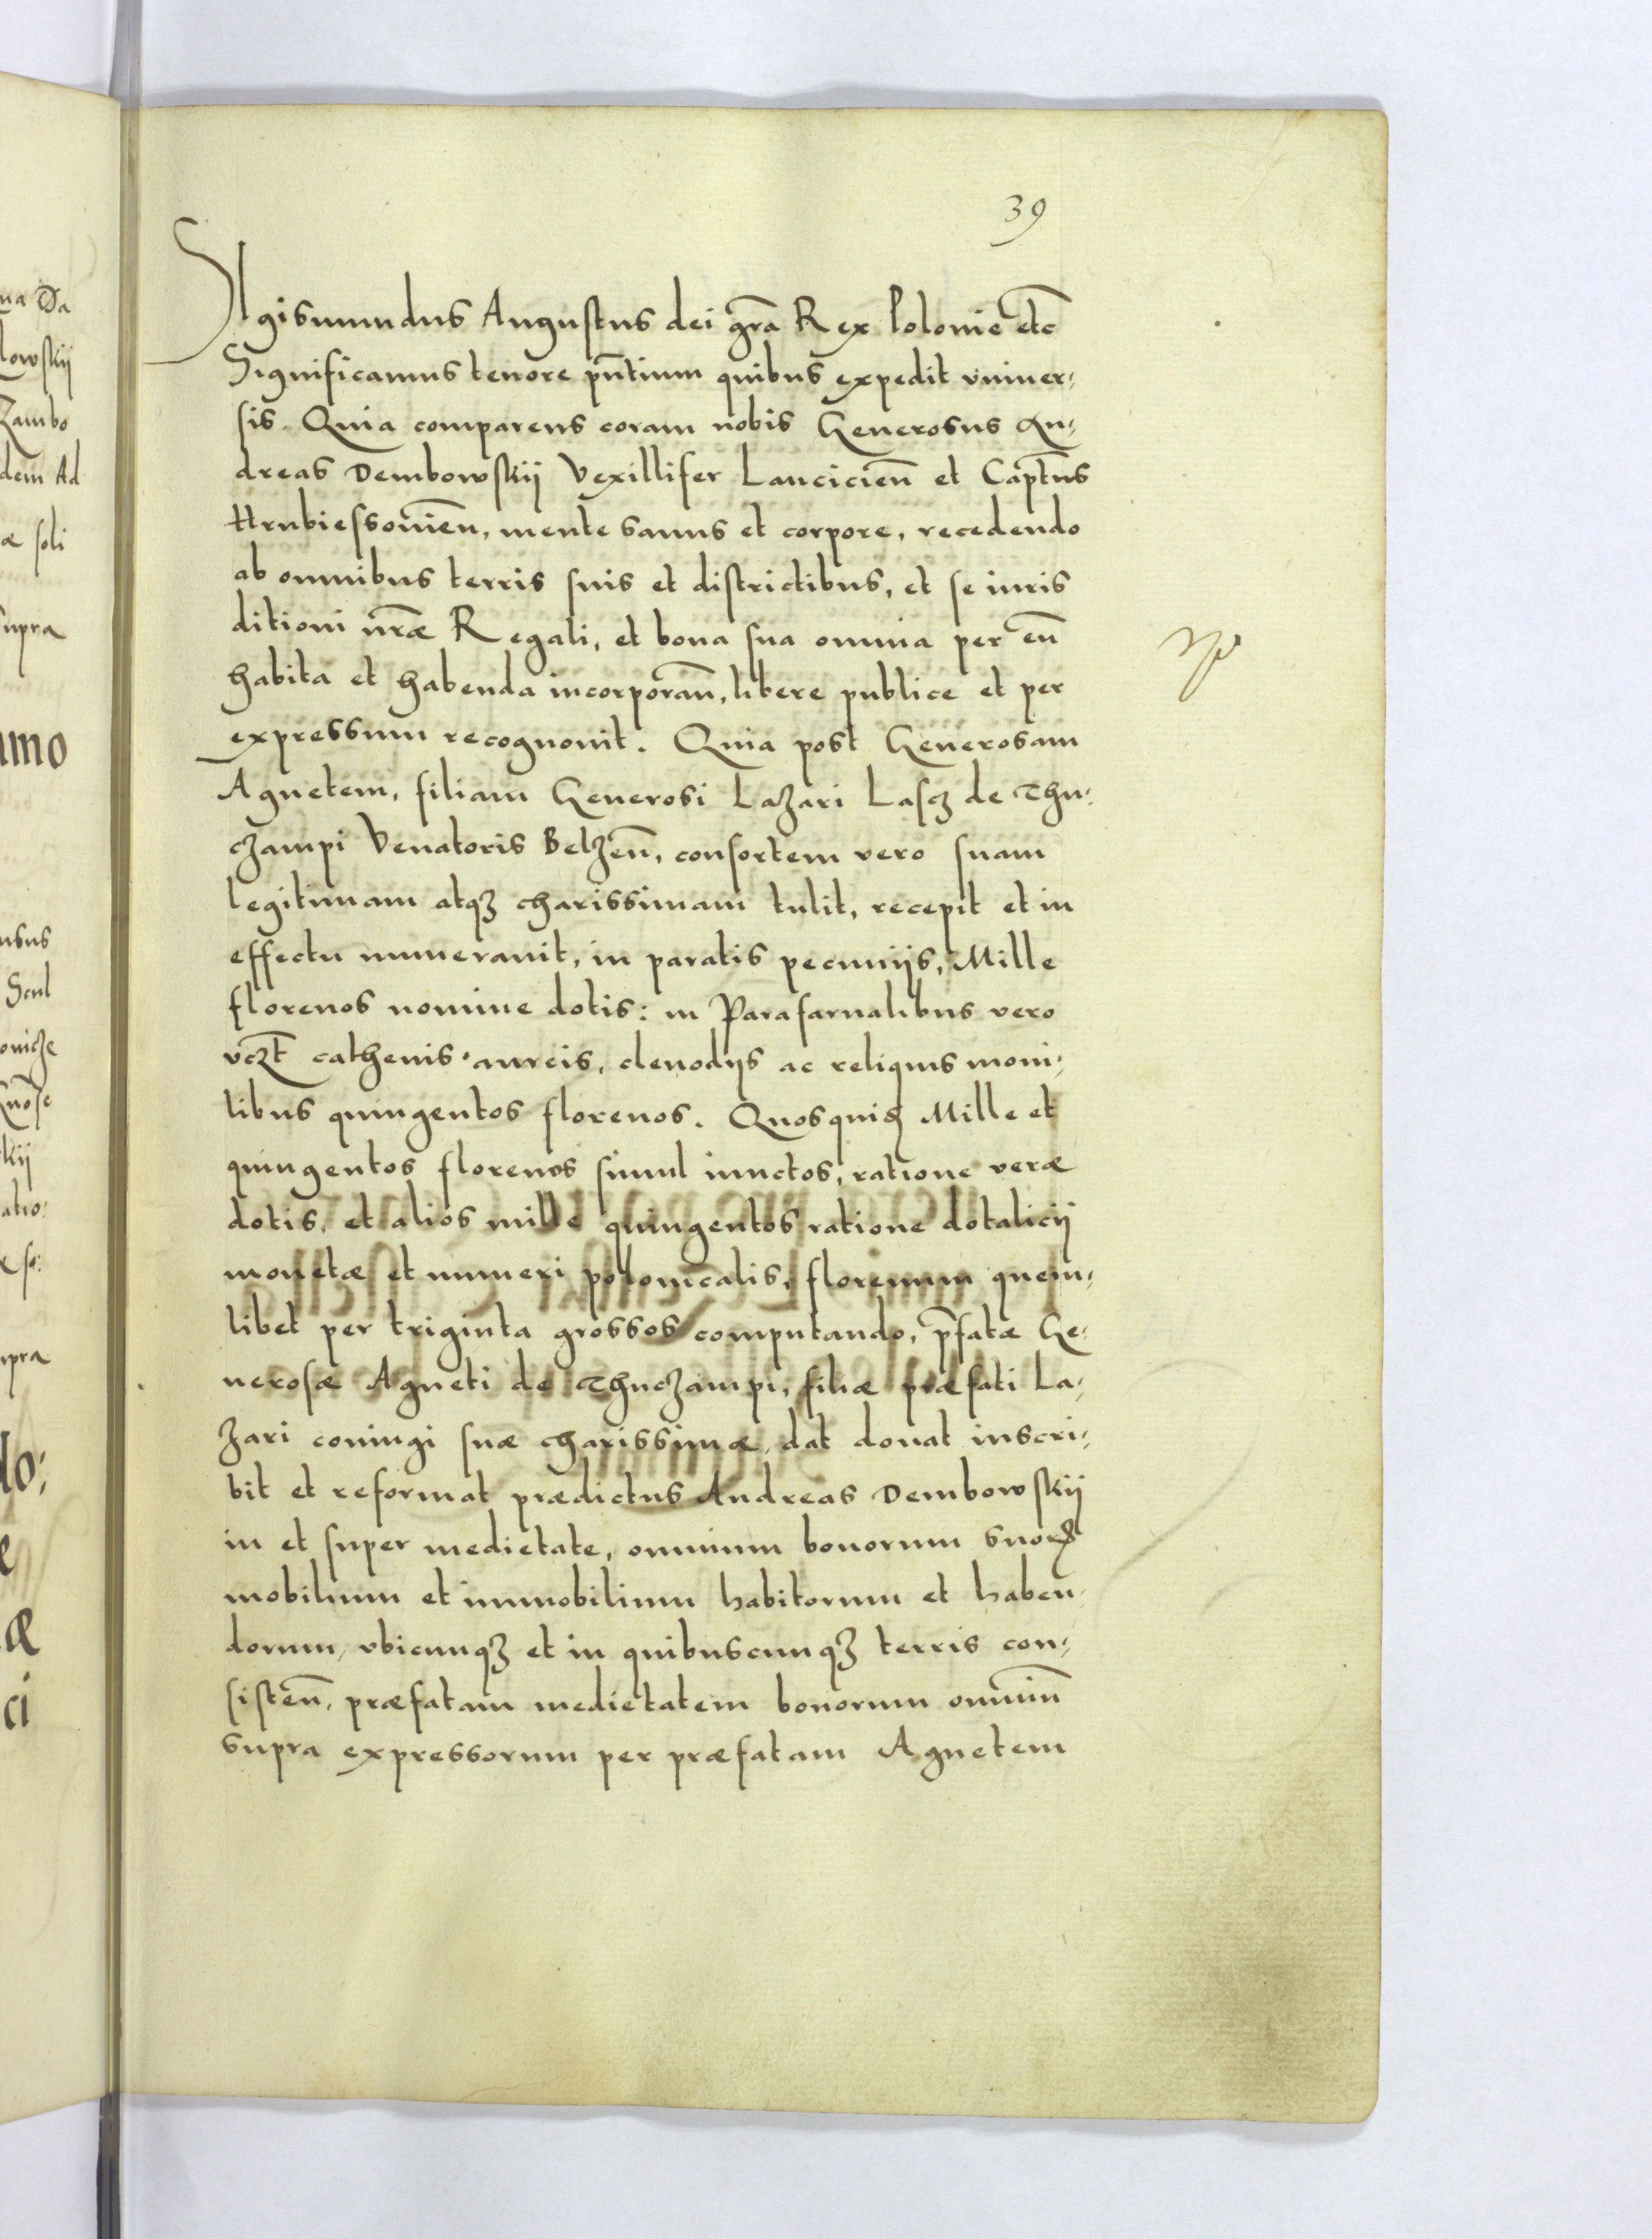 39
Sigismundus Augustus dei gr̃a Rex Polonie etc̃
Significamus tenore pñtium quibus expedit vniuer⸗
sis. Quia comparens coram nobis Generosus An⸗
dreas Dembowskij Vexillifer Lancicieñ et Captñus
Hrubiessouieñ, mente sanus et corpore, recedendo
ab omnibus terris suis et districtibus, et se iuris
ditioni nr̃æ Regali, et bona sua omnia per eũ
habita et habenda incorporañ, libere publice et per
expressum recognouit. Quia post Generosam
Agnetem, filiam Generosi Lazari Lascz de Thu⸗
czampi Venatoris Belzeñ, consortem vero suam
legitimam atqȝ charissimam tulit, recepit et in
effectu numerauit, in paratis pecunijs, Mille
florenos nomine dotis: in Parafarnalibus vero
vcz̃t cathenis aureis, clenodijs ac reliquis moni⸗
libus quingentos florenos. Quosquidꝫ Mille et
quingentos florenos simul iunctos, ratione veræ
dotis, et alios mille quingentos ratione dotalicij
monetæ et numeri polonicalis, florenum quem⸗
libet per triginta grossos computando, p̃fatæ Ge⸗
nerosæ Agneti de Thuczampi, filiæ præfati La⸗
zari coniugi suæ charissimæ, dat donat inscri⸗
bit et reformat prædictus Andreas Dembowskij
in et super medietate, omnium bonorum suorꝝ
mobilium et immobilium habitorum et haben
dorum, vbicunqȝ et in quibuscunqȝ terris con⸗
sisteñ, præfatam medietatem bonorum omniũ
supra expressorum per præfatam Agnetem